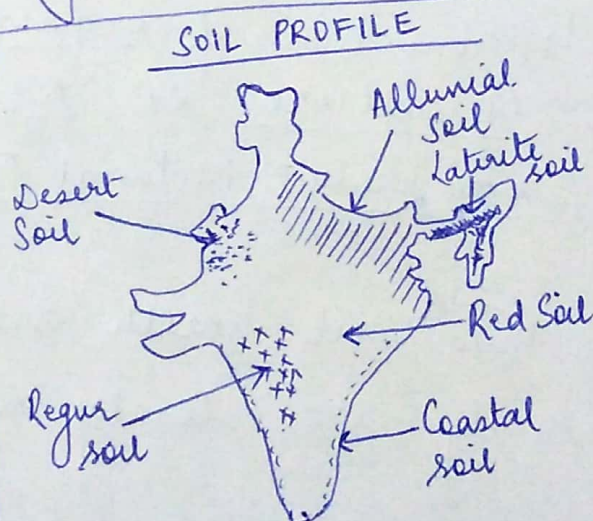 SOIL PROFILE
Alluvial
Soil
Laterite
soil
Desert
Soil
Red Soil
Regur
soil
Coastal
soil